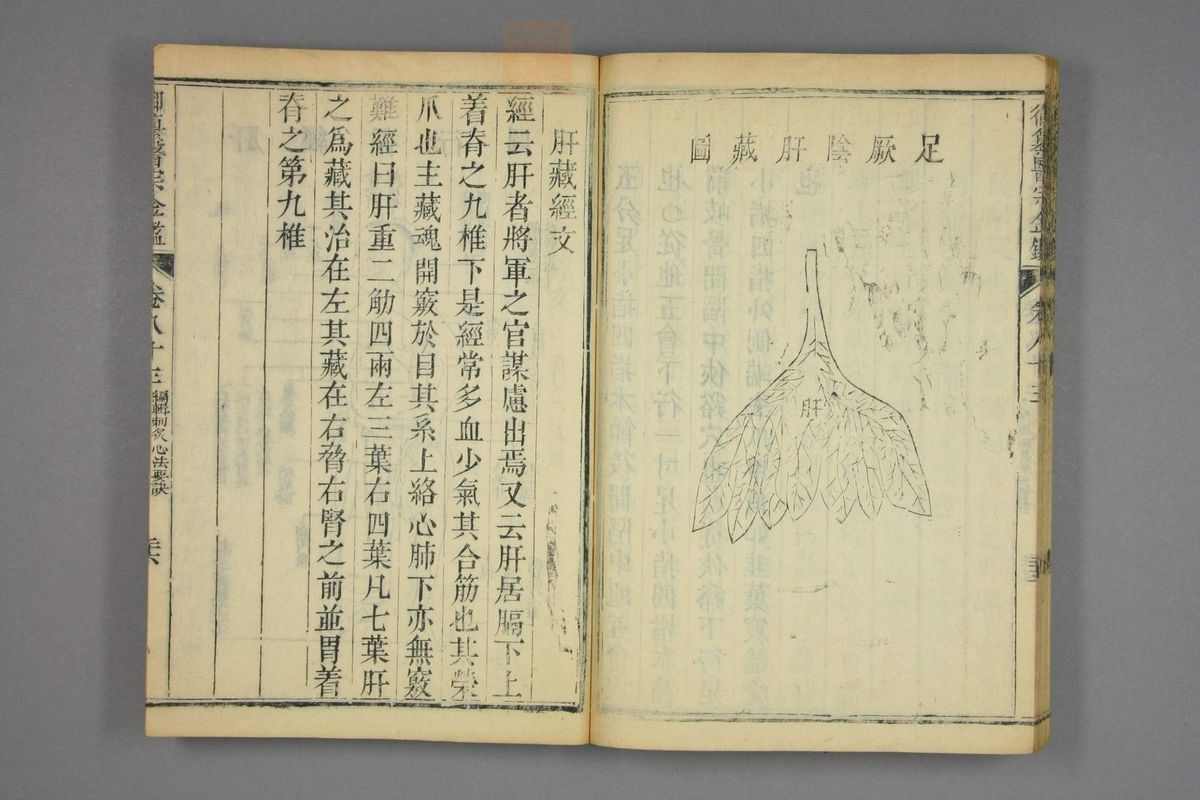 足厥陰肝藏圖
肝
御纂醫宗金鑑
卷八十三
肝藏經文
經云肝者將軍之官謀慮出焉又云肝居膈下上
着脊之九椎下是經常多血少氣其合筋也其榮
爪也主藏魂開竅於目其系上絡心肺下亦無竅
難經曰肝重二觔四兩左三葉右四葉凡七葉肝
之爲藏其治在左其藏在右脅右腎之前並胃着
脊之第九椎
御纂醫宗金鑑
卷八十三
編輯刺灸心法要訣